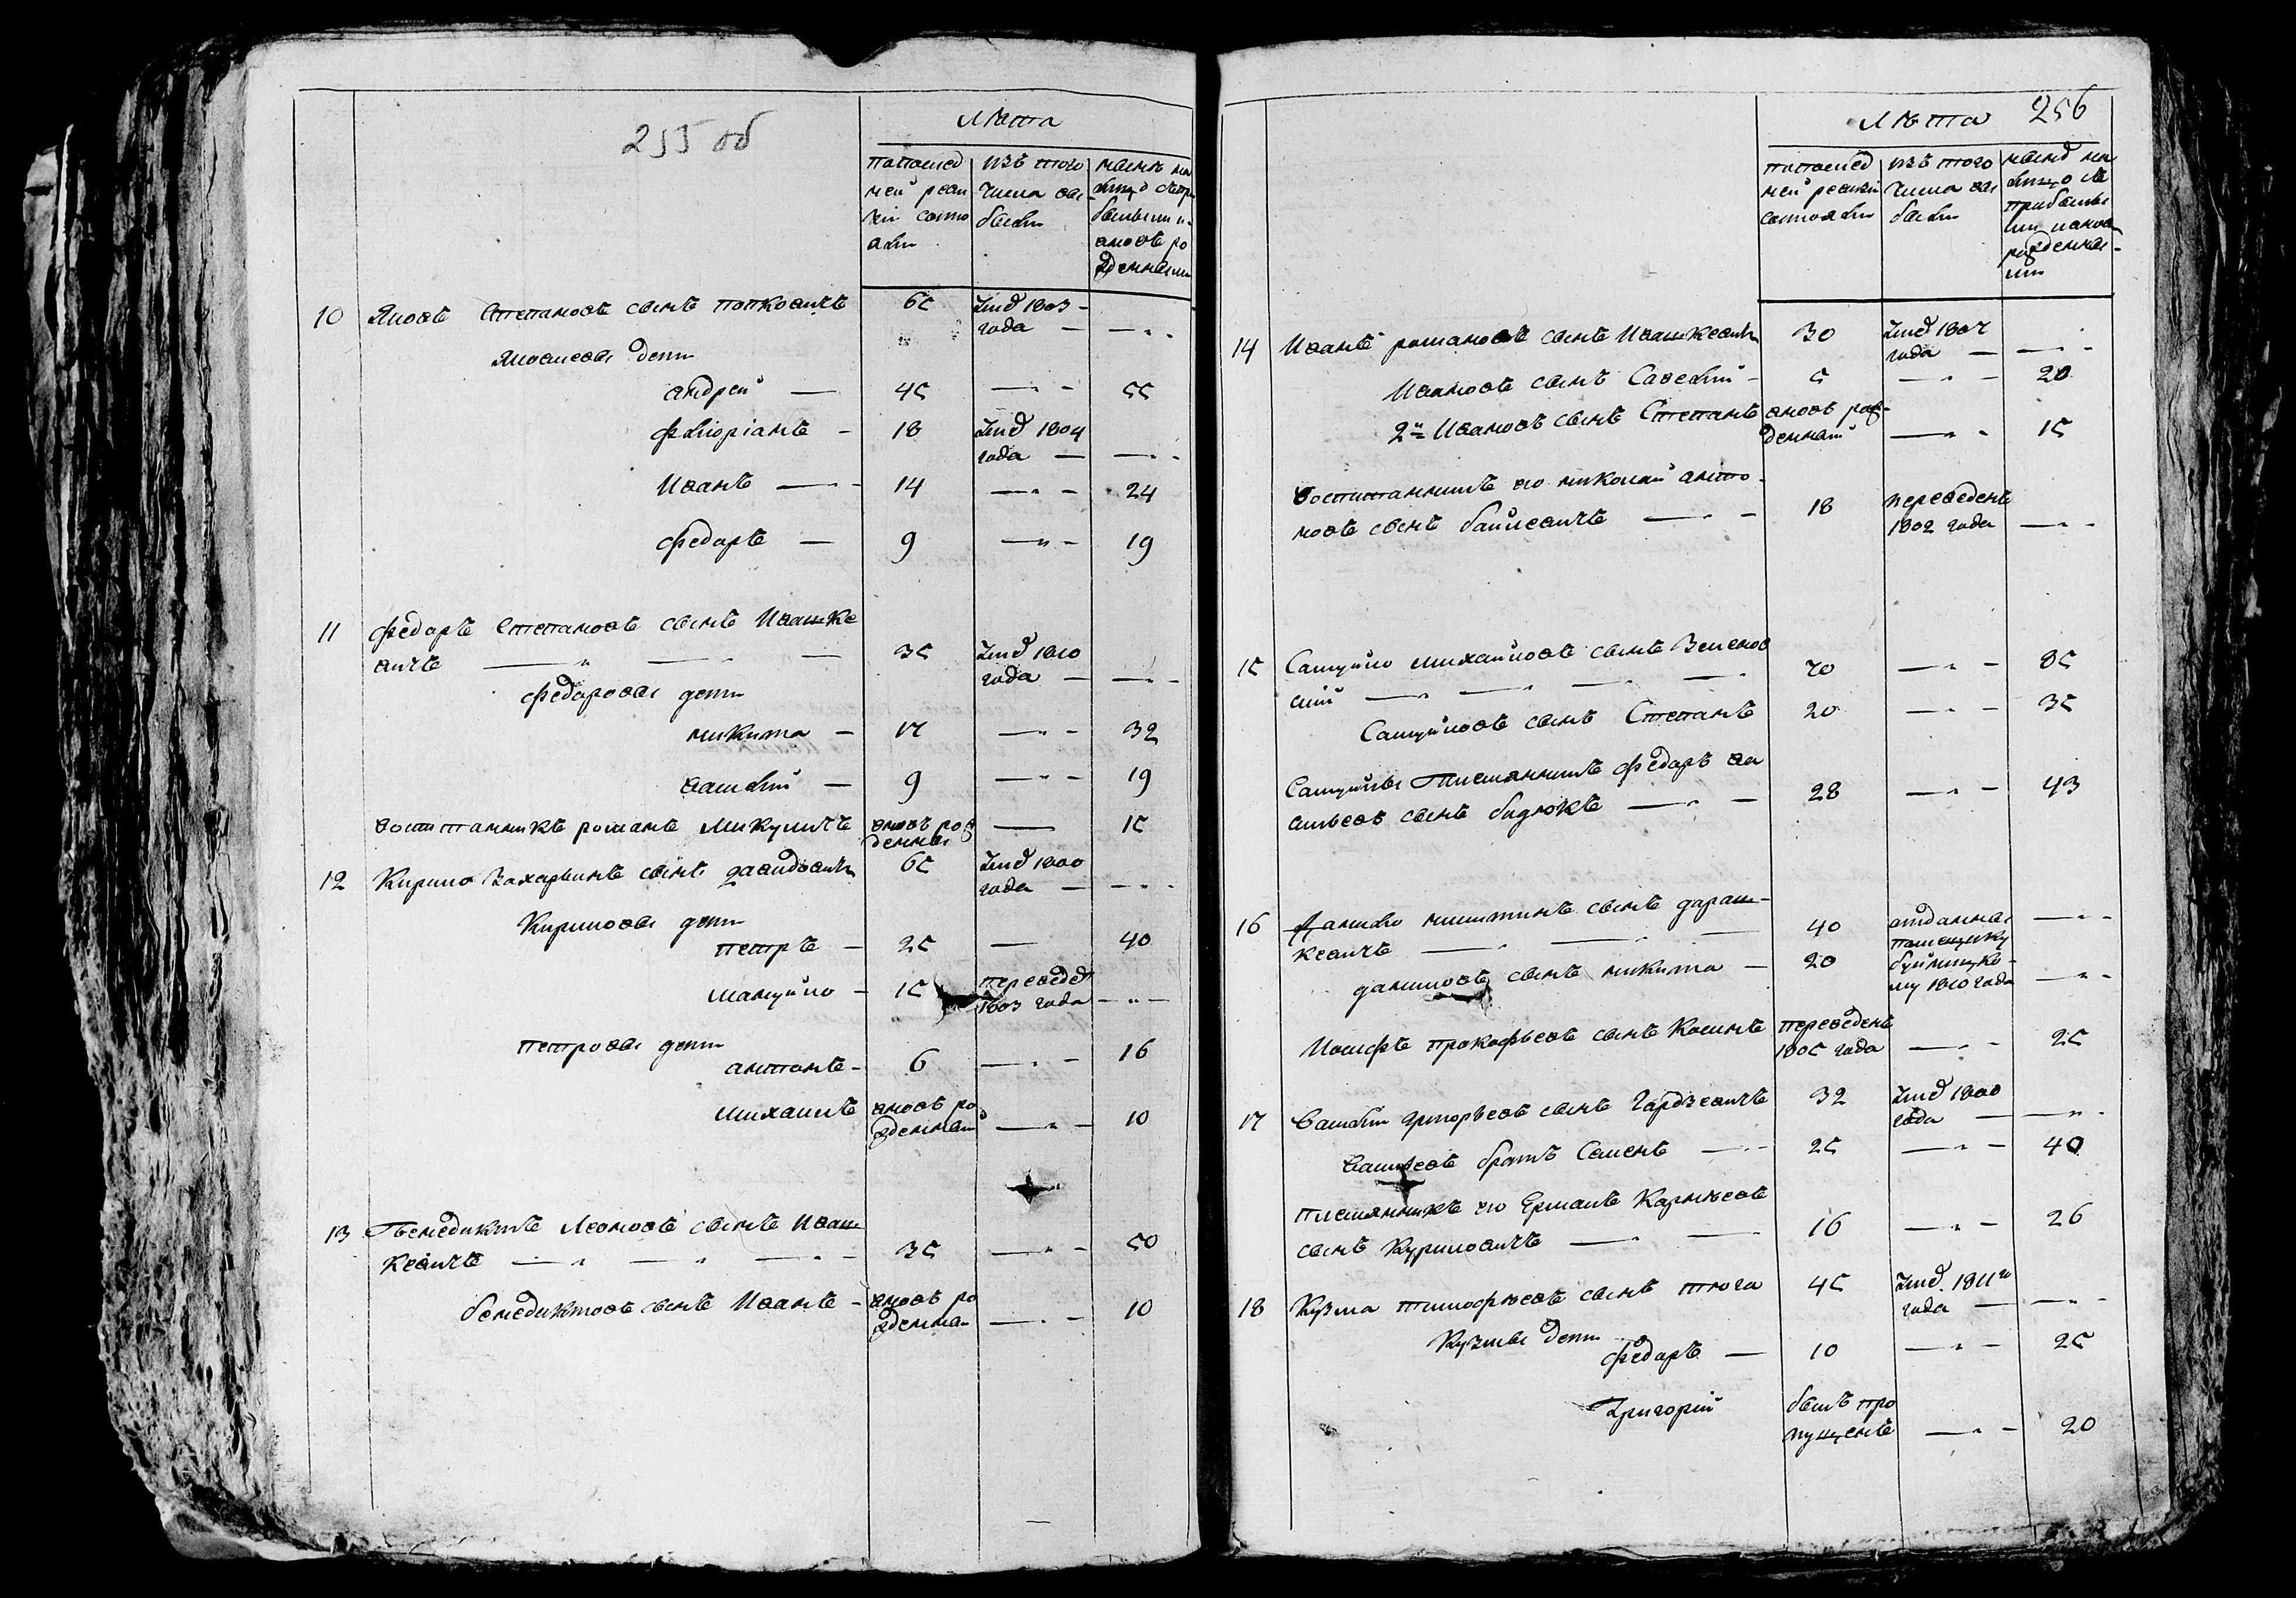 255 об
Лѣта
попослед изъ того нынѣ на
ней реви числа вы лицо спри
зіи состо были былыми и
яли вновь ро
жденными
10 Яковъ Степановъ сынъ попковичъ 65 Умер 1803
года — —
Яковлевы дети
андрей — 45 — 55
Флоріанъ — 18 Умер 1804
года — —
Иванъ — 14 — 24
Федаръ — 9 — 19
11 Федаръ Степановъ сынъ Ивашке
вичъ — — — 35 Умер 1810
года — —
Федаровы дети
микита — 17 — 32
василій — 9 — 19
воспитанникъ романъ Микуличъ вновь рож — 15
денны
12 Кирило Захарьинъ сынъ давидовичъ 65 Умер 1800
года — —
Кириловы дети
петръ — 25 — 40
мануйло — 15 перевед
1803 года —
петровы дети
антонъ — 6 — 16
михаилъ вновь ро
жденный — 10
13 Бенедиктъ Леоновъ сынъ Иваш
кевичъ — — — 35 — 50
бенедиктовъ сынъ Иванъ — вновь ро
жденны — 10
256
Лѣта
попослед изъ того нынѣ на
ней ревизіи числа вы лицо съ
состояли были прибылы
ми и новы
рожденны
ми
14 Иванъ романовъ сынъ Ивашкевичъ 30 Умер 1807
года — —
Ивановъ сынъ Савелий — 5 — 20
2й Ивановъ сынъ Степанъ вновь рож
денный — 15
воспитанникъ его николай анто
новъ сынъ байлевичъ — 18 переведенъ
1802 года —
15 Самуйло михайловъ сынъ Зеленов
скій — — — 70 — 85
Самуйловъ сынъ Степанъ 20 — 35
Самуйлы племянникъ федаръ ва
сильевъ сынъ бидюкъ — 28 — 43
16 Данило микитинъ сынъ дараш
кевичъ — — — 40 отданны —
помещику
даниловъ сынъ микита — 20 буйницко
му 1810 года —
Иосифъ прокофьевъ сынъ Косинъ переведенъ
1805 года — 25
17 Василій григорьевъ сынъ Гардзевичъ 32 Умер 1800
года — —
васильевъ братъ Семенъ — 25 — 40
племянникъ его Ермалъ Карнѣевъ
сынъ Куриловичъ — 16 — 26
18 Кузма тимофѣевъ сынъ тюга 45 Умер. 1811го
года — —
Кузмы дети
федаръ — 10 — 25
Григорій былъ про
пущенъ — 20